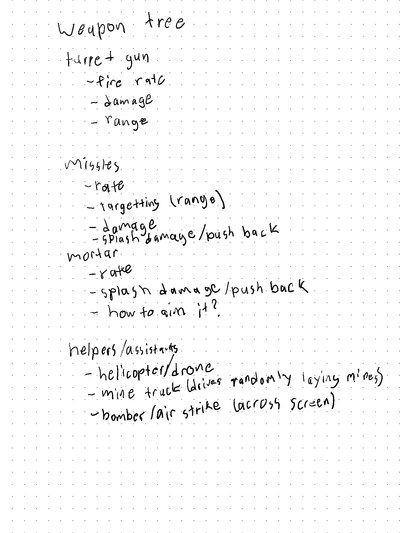 weapon tree
turret gun
- fire rate
- damage
- range
missles
- rate
- targetting (range)
- damage
- splash damage/push back
mortar
- rate
- splash damage/push back
- how to aim it?
helpers/assistants
- helicopter/drone
- mine truck (drives randomly laying mines)
- bomber/air strike (across screen)